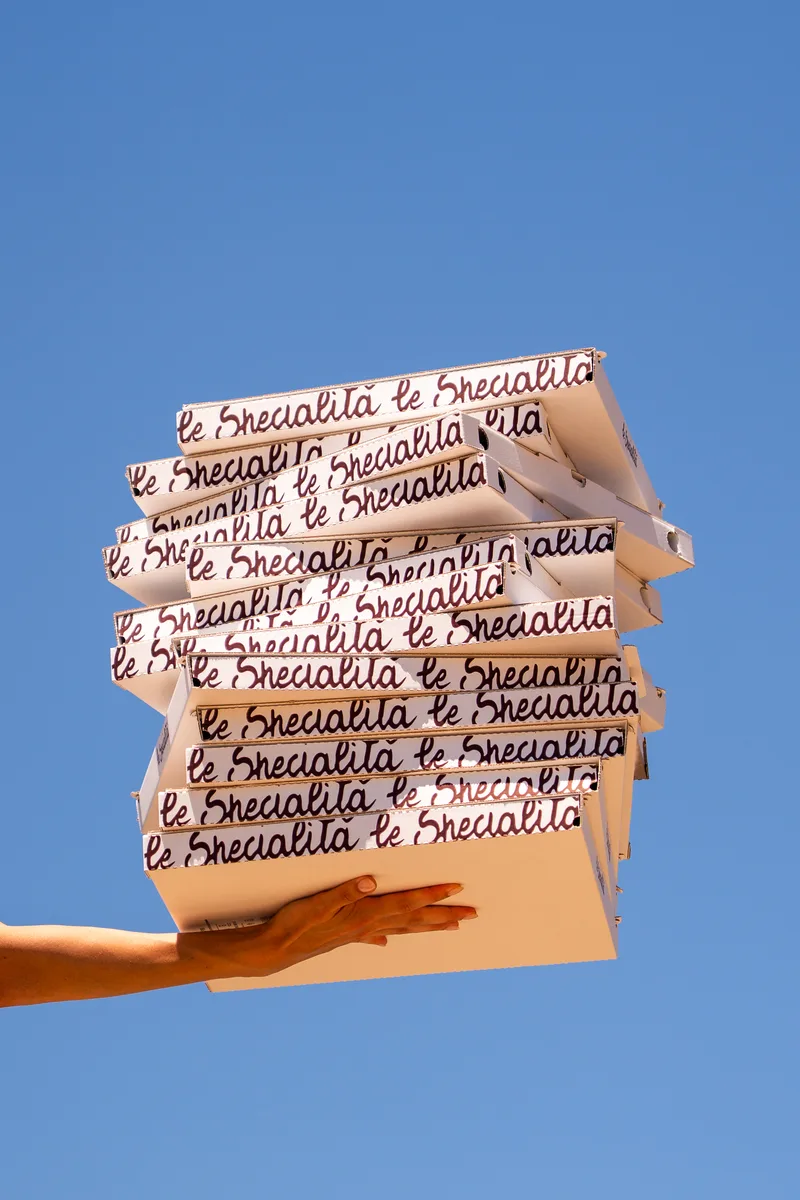 le Specialità le Specialità
le Specialità
le Specialità le Specialità
le Specialità le Specialità
le Specialità
le Specialità le Specialità
le Specialità
le Specialità le Specialità
le Specialità le Specialità
le Specialità le Specialità
le Specialità le Specialità
le Specialità le Specialità
le Specialità le Specialità